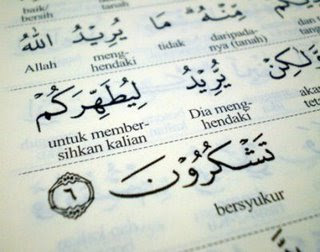 baik/
bersih
مِنْهُ مَا يُرِيْدُ اللهُ
Allah meng- tidak daripada-
hendaki nya (tanah)
وَلٰكِنْ يُرِيْدُ لِيُطَهِّرَكُمْ
untuk member- Dia meng-
sihkan kalian hendaki
تَشْكُرُوْنَ ٦
bersyukur